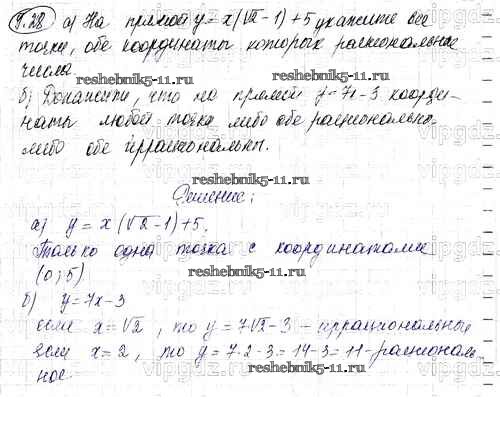 9.28 а) На прямой y = x(√2 - 1) + 5 укажите все
точки, обе координаты которых рациональные
числа.
reshebnik5-11.ru
б) Докажите, что на прямой y = 7x - 3 коорди-
наты любой точки либо обе рациональны
либо обе иррациональны.
reshebnik5-11.ru
Решение:
а) y = x(√2 - 1) + 5.
reshebnik5-11.ru
Только одна точка с координатами
(0; 5)
reshebnik5-11.ru
б) y = 7x - 3
если x = √2, то y = 7√2 - 3 - иррациональные
если x = 2, то y = 7·2 - 3 = 14 - 3 = 11 - рациональ-
ное.
reshebnik5-11.ru